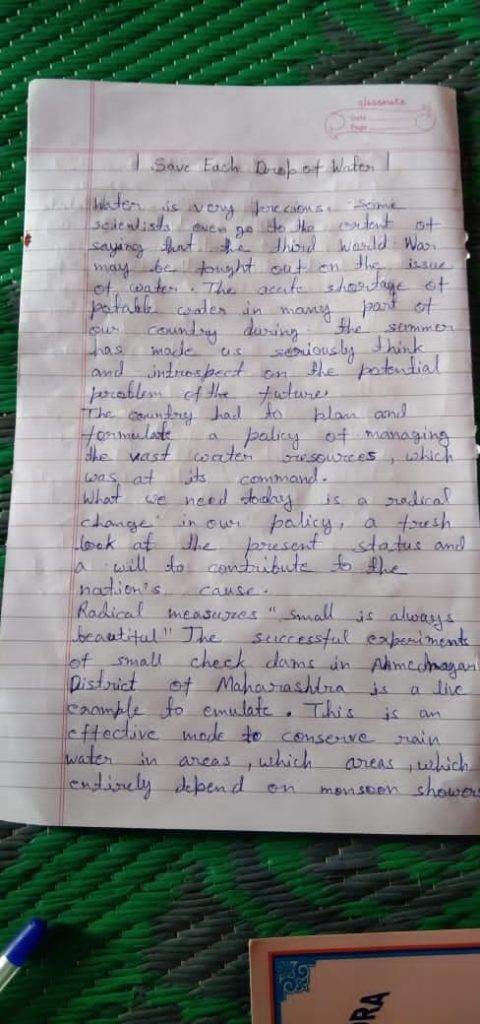 classmate
Date
Page
Save Each Drop of Water
Water is very precious. Some
scientists even go to the extent of
saying that the third World War
may be fought out on the issue
of water. The acute shortage of
potable water in many part of
our country during the summer
has made us seriously think
and introspect on the potential
problem of the future.
The country had to plan and
formulate a policy of managing
the vast water resources, which
was at its command.
What we need today is a radical
change in our policy, a fresh
look at the present status and
a will to contribute to the
nation's cause.
Radical measures "small is always
beautiful" The successful experiments
of small check dams in Ahmednagar
District of Maharashtra is a live
example to emulate. This is an
effective mode to conserve rain
water in areas, which areas, which
entirely depend on monsoon shower
RA